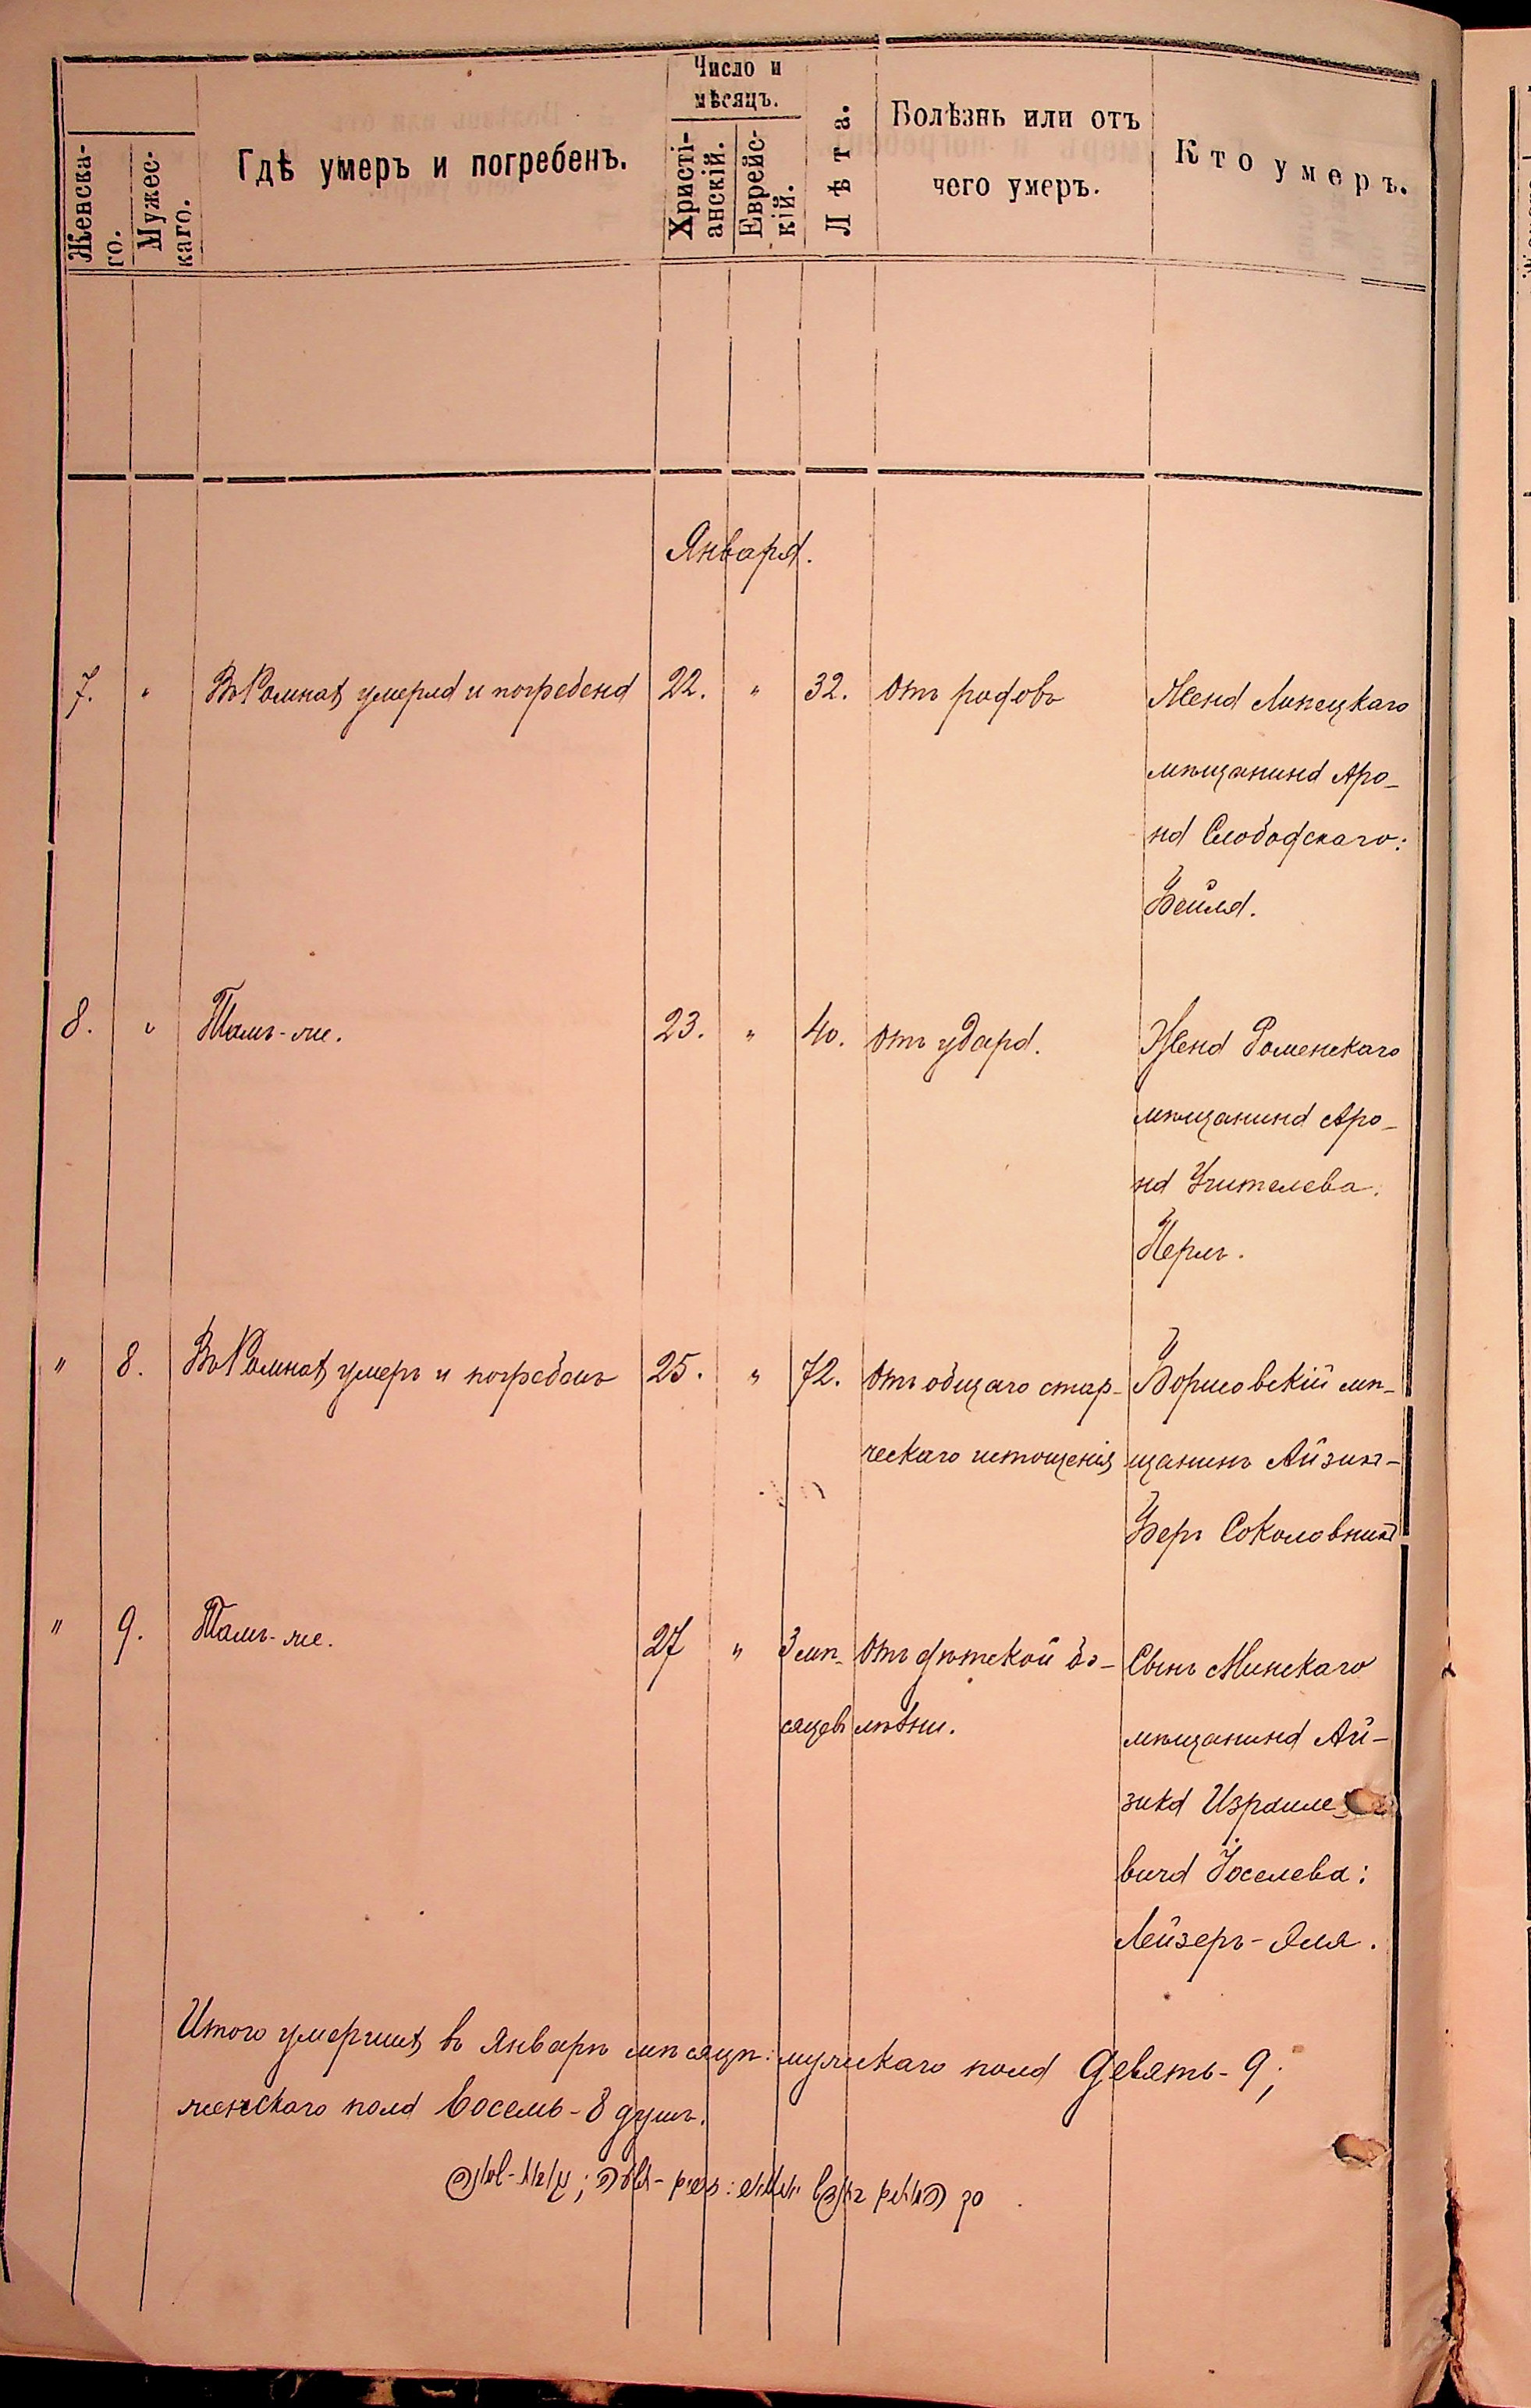 Число и
мѣсяцъ.
Женска-
го.
Мужес-
каго.
Гдѣ умеръ и погребенъ.
Христі-
анскій.
Еврейс-
кій.
Лѣта.
Болѣзнь или отъ
чего умеръ.
Кто умеръ.
Января.
7. " Въ Ромнахъ умерла и погребена 22. " 32. Отъ родовъ Жена Липецкаго
мѣщанина Аро-
на Слободскаго:
Бейля.
8. " Тамъ-же. 23. " 40. Отъ удара. Жена Роменскаго
мѣщанина Аро-
на Учителева:
Перль.
" 8. Въ Ромнахъ умеръ и погребенъ 25. " 72. Отъ общаго стар- мѣ-
ческаго истощенія щанинъ Айзикъ-
Беръ Соколовникъ
" 9. Тамъ-же. 27 " 3 мѣ- Отъ дѣтской бо- Сынъ Минскаго
сяцевъ лѣзни. мѣщанина Ай-
зика Израиле-
вича Іоселева:
Лейзеръ-Эля.
Итого умершихъ въ Январѣ мѣсяцѣ: мужскаго пола девять-9;
женскаго пола восемь-8 душъ.